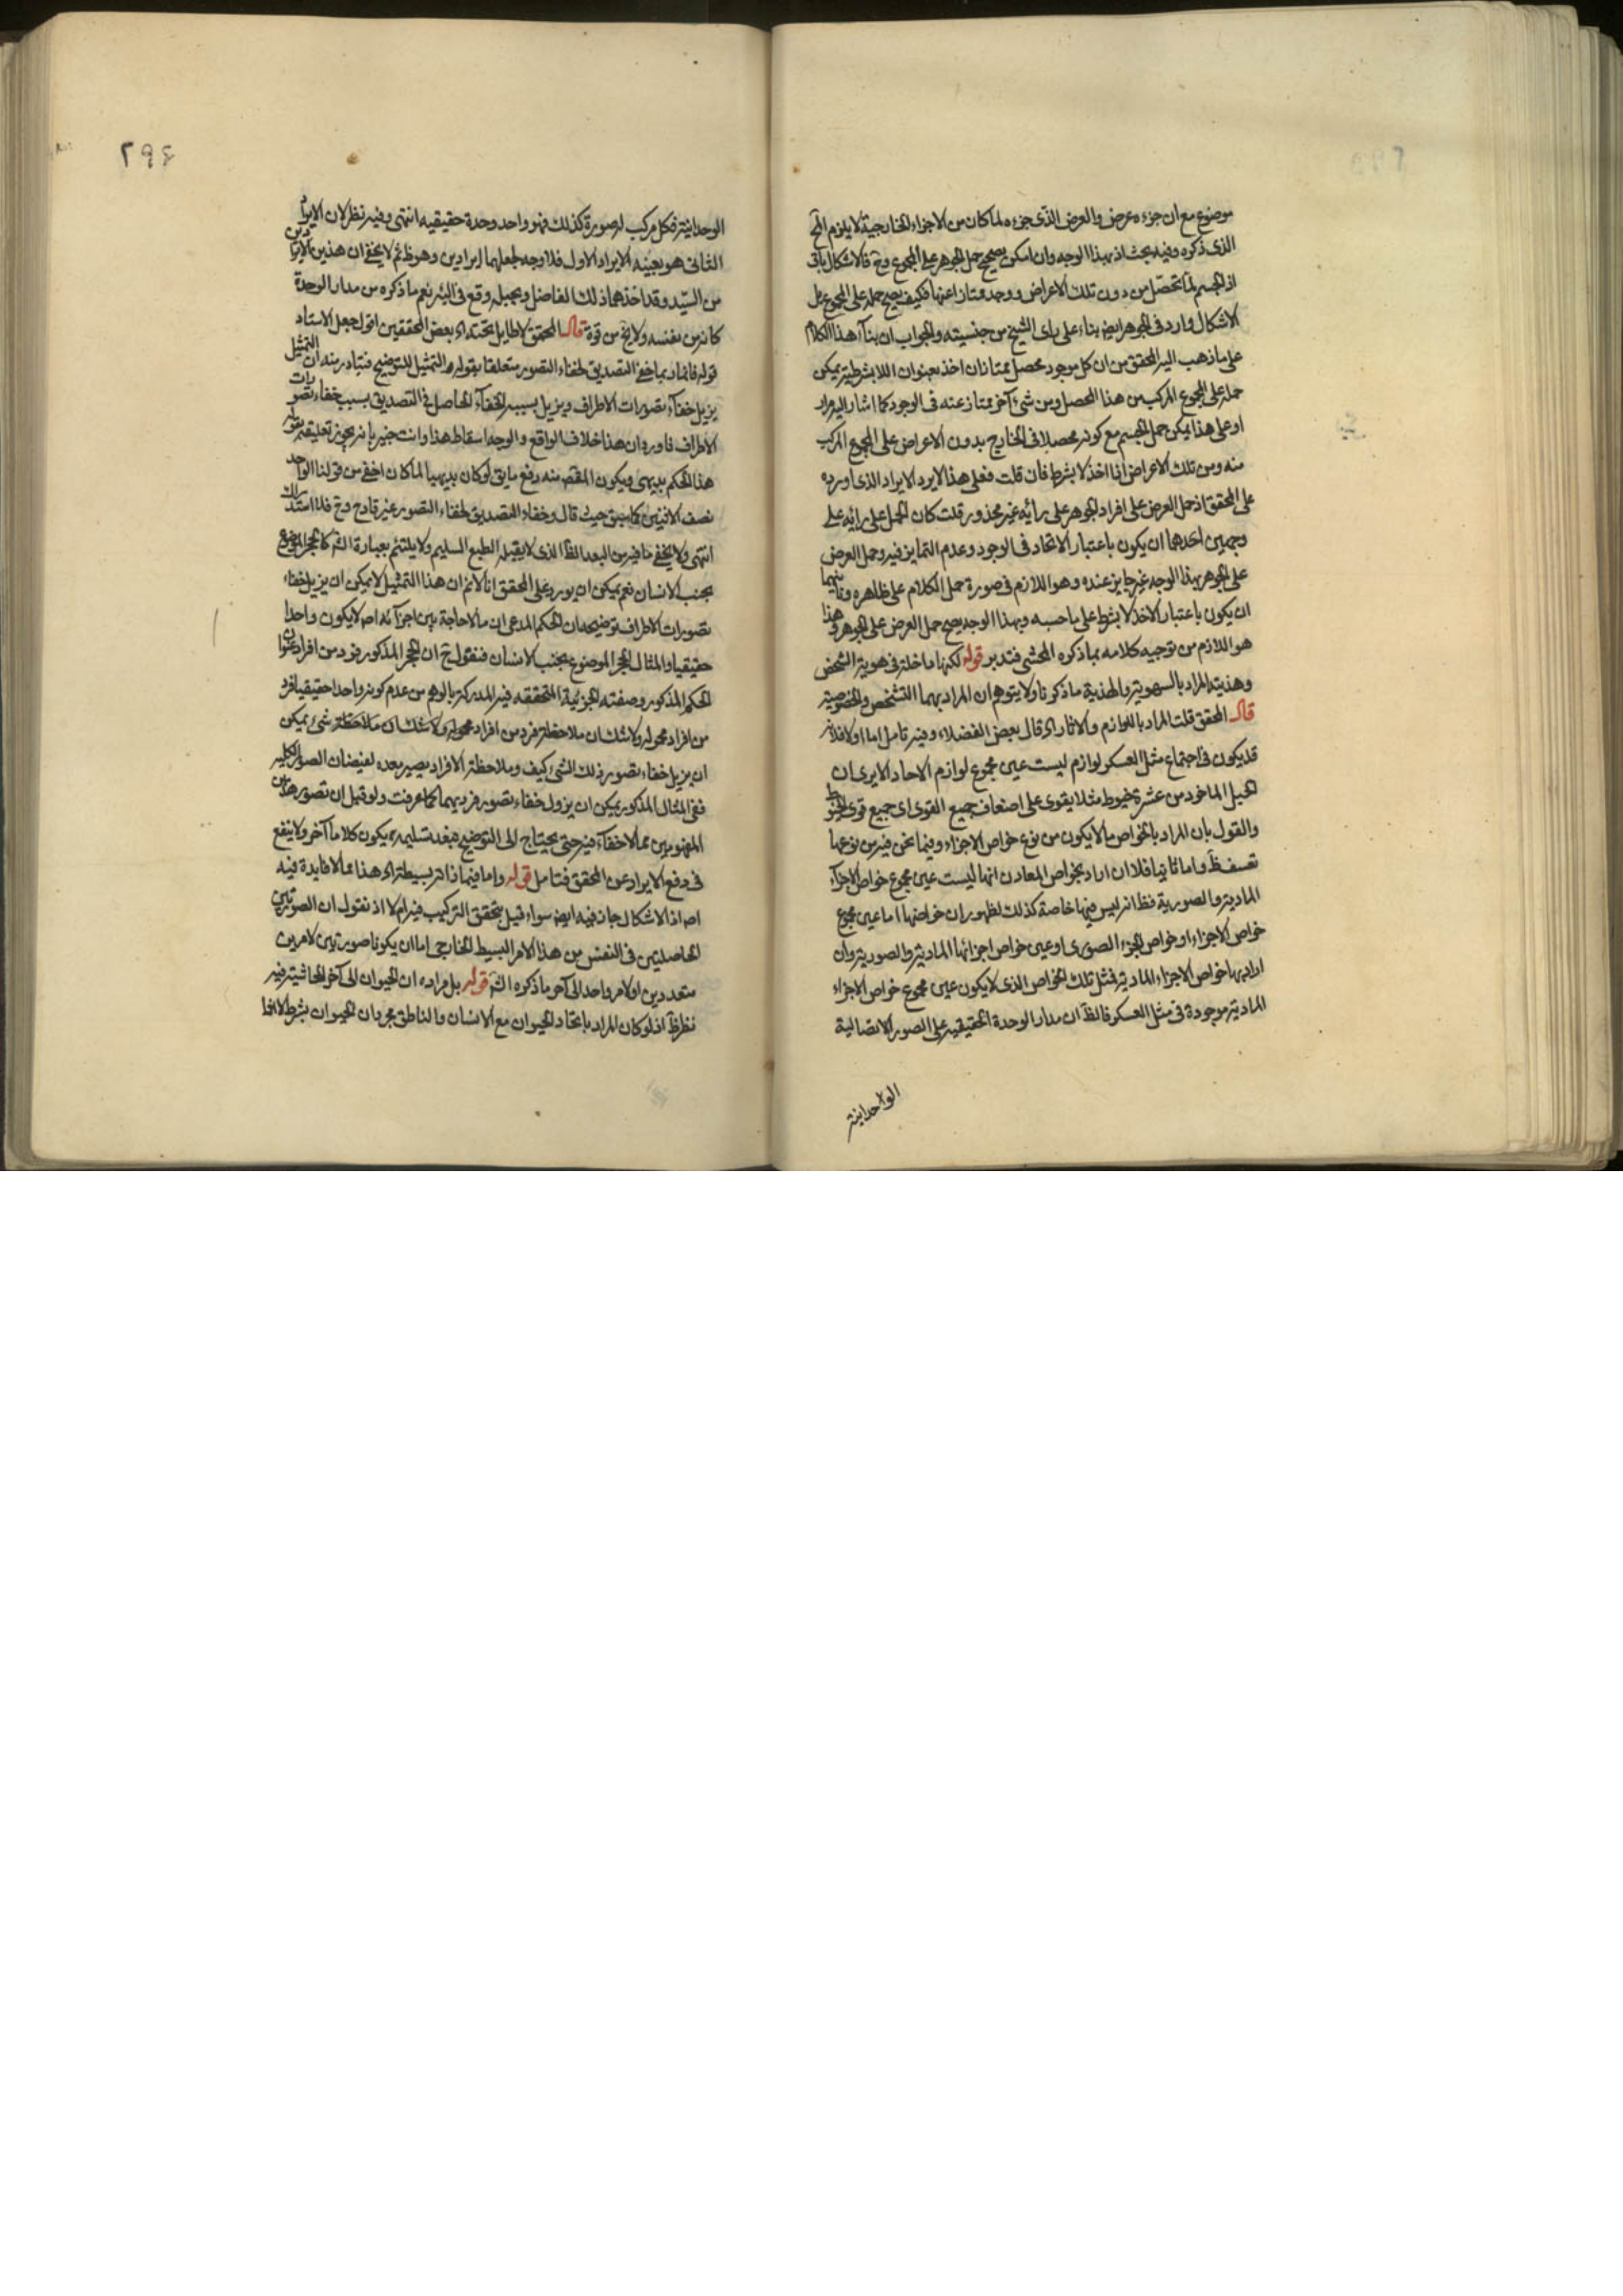 موضوع مع ان جزءه عرض والعرض الذى جزءه لما كان من الاجزاء الخارجية لا يلزم الح
الذى ذكره وفيه بحث اذ بهذا الوجه وان امكن تصحيح حمل الجوهر على المجموع وح فالاشكال باق
اذ الجسم لما تحصل من دون تلك الاعراض ووجد ممتازا عنها فكيف يصح حمله على المجموع بل
الاشكال وارد فى الجوهر ايض بناء على راى الشيخ من جنسيته والجواب ان بناء هذا الكلام
على ما ذهب اليه المحقق من ان كل موجود محصل ممتاز ان اخذ بعنوان اللا بشرطية يمكن
حمله على المجموع المركب من هذا المحصل ومن شئ آخر ممتاز عنه فى الوجود كما اشار اليه مرار
او على هذا يمكن حمل الجسم مع كونه محصلا فى الخارج بدون الاعراض على المجموع المركب
منه ومن تلك الاعراض اذا اخذ لا بشرط فان قلت فعلى هذا لا يرد الايراد الذى اورده
على المحقق اذ حمل العرض على افراد الجوهر على رأيه غير محذور قلت كان الحمل على رائه على
وجهين احدهما ان يكون باعتبار الاتحاد فى الوجود وعدم التمايز فيه وحمل العرض
على الجوهر بهذا الوجه غير جايز عنده وهو اللازم فى صورة حمل الكلام على ظاهره وثانيهما
ان يكون باعتبار الاخذ لا بشرط على ما حسبه وبهذا الوجه يصح حمل العرض على الجوهر وهذا
هو اللازم من توجيه كلامه بما ذكره المحشى فتدبر قوله لكنها داخلة فى هوية الشخص
وهذيته المراد بالهوية والهذية ما ذكرنا ولا يتوهم ان المراد بهما التشخص والخصوصية
قال المحقق قلت المراد باللوازم والاثار اه قال بعض الفضلاء وفيه تامل اما اولا فلانه
قد يكون فى اجتماع مثل العسكر لوازم ليست عين مجموع لوازم الاحاد الا يرى ان
الحبل الماخوذ من عشرة خيوط مثلا يقوى على اضعاف جميع القوى اى جميع قوى الخيوط
والقول بان المراد بالخواص ما لا يكون من نوع خواص الاجزاء وفيما نحن فيه من نوعها
تعسف ظ واما ثانيا فلان ان اراد بخواص المعادن انها ليست عين مجموع خواص الاجزآء
المادية والصورية فظ انه ليس فيها خاصة كذلك لظهور ان خواصها اما عين مجموع
خواص الاجزاء او خواص الجزء الصورى او عين خواص اجزائها المادية والصورية وان
اراد بها خواص الاجزاء المادية فمثل تلك الخواص الذى لا يكون عين مجموع خواص الاجزاء
المادية موجودة فى مثل العسكر فالظ ان مدار الوحدة الحقيقية على الصور الاتصالية
الواحدانية
٢٩٤
الوحدانية فكل مركب له صورة كذلك فهو واحد وحدة حقيقيه انتهى وفيه نظر لان الايراد
الثانى هو بعينه الايراد الاول فلا وجه لجعلهما ايرادين وهو ظ ثم لا يخفى ان هذين الايرادين
من السيد وقد اخذهما ذلك الفاضل وبجبله وقع فى البئر نعم ما ذكره من مدار الوحدة
كانه من نفسه ولا يخ من قوة قال المحقق لا طايل تحته اه بعض المحققين اقول جعل الاستاد
قوله فانما ربما خفى التصديق لخفاء التصور متعلقا بقوله والتمثيل للتوضيح فتبادر منه ان التمثيل
يزيل خفآء تصورات الاطراف ويزيل بسببه الخفآء الحاصل فى التصديق بسبب خفاء تصورات
الاطراف فاورد ان هذا خلاف الواقع والوجه اسقاط هذا وانت خبير بانه يجوز تعليقه بقوله
هذا الحكم بديهى ويكون المقصد منه دفع ما يق لو كان بديهيا لما كان اخفى من قولنا الواحد
نصف الاثنين كما سبق حيث قال وخفاء التصديق لخفاء التصور غير قادح وح فلا استدراك
انتهى ولا يخفى ما فيه من البعد الظ الذى لا يقبله الطبع السليم ولا يلتئم بعبارة الش كالحجر الموضوع
بجنب الانسان نعم يمكن ان يورد على المحقق انا لا نم ان هذا التمثيل لا يمكن ان يزيل خفاء
تصورات الاطراف توضيحه ان الحكم المدعى ان ما لا حاجة بين اجزآئه اصلا لا يكون واحدا
حقيقيا والمثال الحجر الموضوع بجنب الانسان فنقول ح ان الحجر المذكور فرد من افراد عنوان
الحكم المذكور وصفته الجزئية المتحققة فيه المدركة بالوهم من عدم كونه واحدا حقيقيا فرد
من افراد محموله ولا شك ان ملاحظة فرد من افراد محموله ولا شك ان ملاحظة شئ يمكن
ان يزيل خفاء تصور ذلك الشئ كيف وملاحظة الافراد يصير معدة لفيضان الصور الكلية
ففى المثال المذكور يمكن ان يزول خفاء تصور فرديهما كما عرفت ولو قيل ان تصور هذين
المفهومين مما لا خفآء فيه حتى يحتاج الى التوضيح فبعد تسليمه يكون كلاما آخر ولا ينفع
فى دفع الايراد عن المحقق فتامل قوله واما فيما ذاته بسيطة اه هذا مما لا فايدة فيه
اص اذ الاشكال جار فيه ايض سواء قيل بتحقق التركيب فيه ام لا اذ نقول ان الصورتين
الحاصلتين فى النفس من هذا الامر البسيط الخارجى اما ان يكونا صورتين لامرين
متعددين او لامر واحد الى آخر ما ذكره الش قوله بل مراده ان الحيوان الى آخر الحاشية فيه
نظر ظ اذ لو كان المراد باتحاد الحيوان مع الانسان والناطق مجرد ان الحيوان بشرط